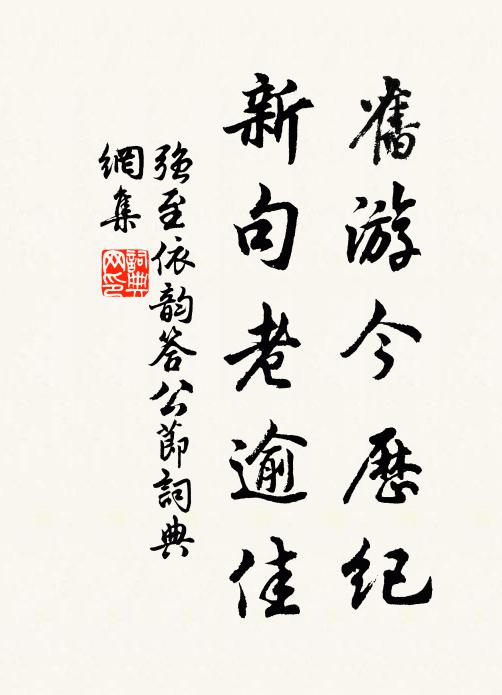 舊游今歷紀
新句老逾佳
强至依韵答公節詞典
網集
詞典
网印